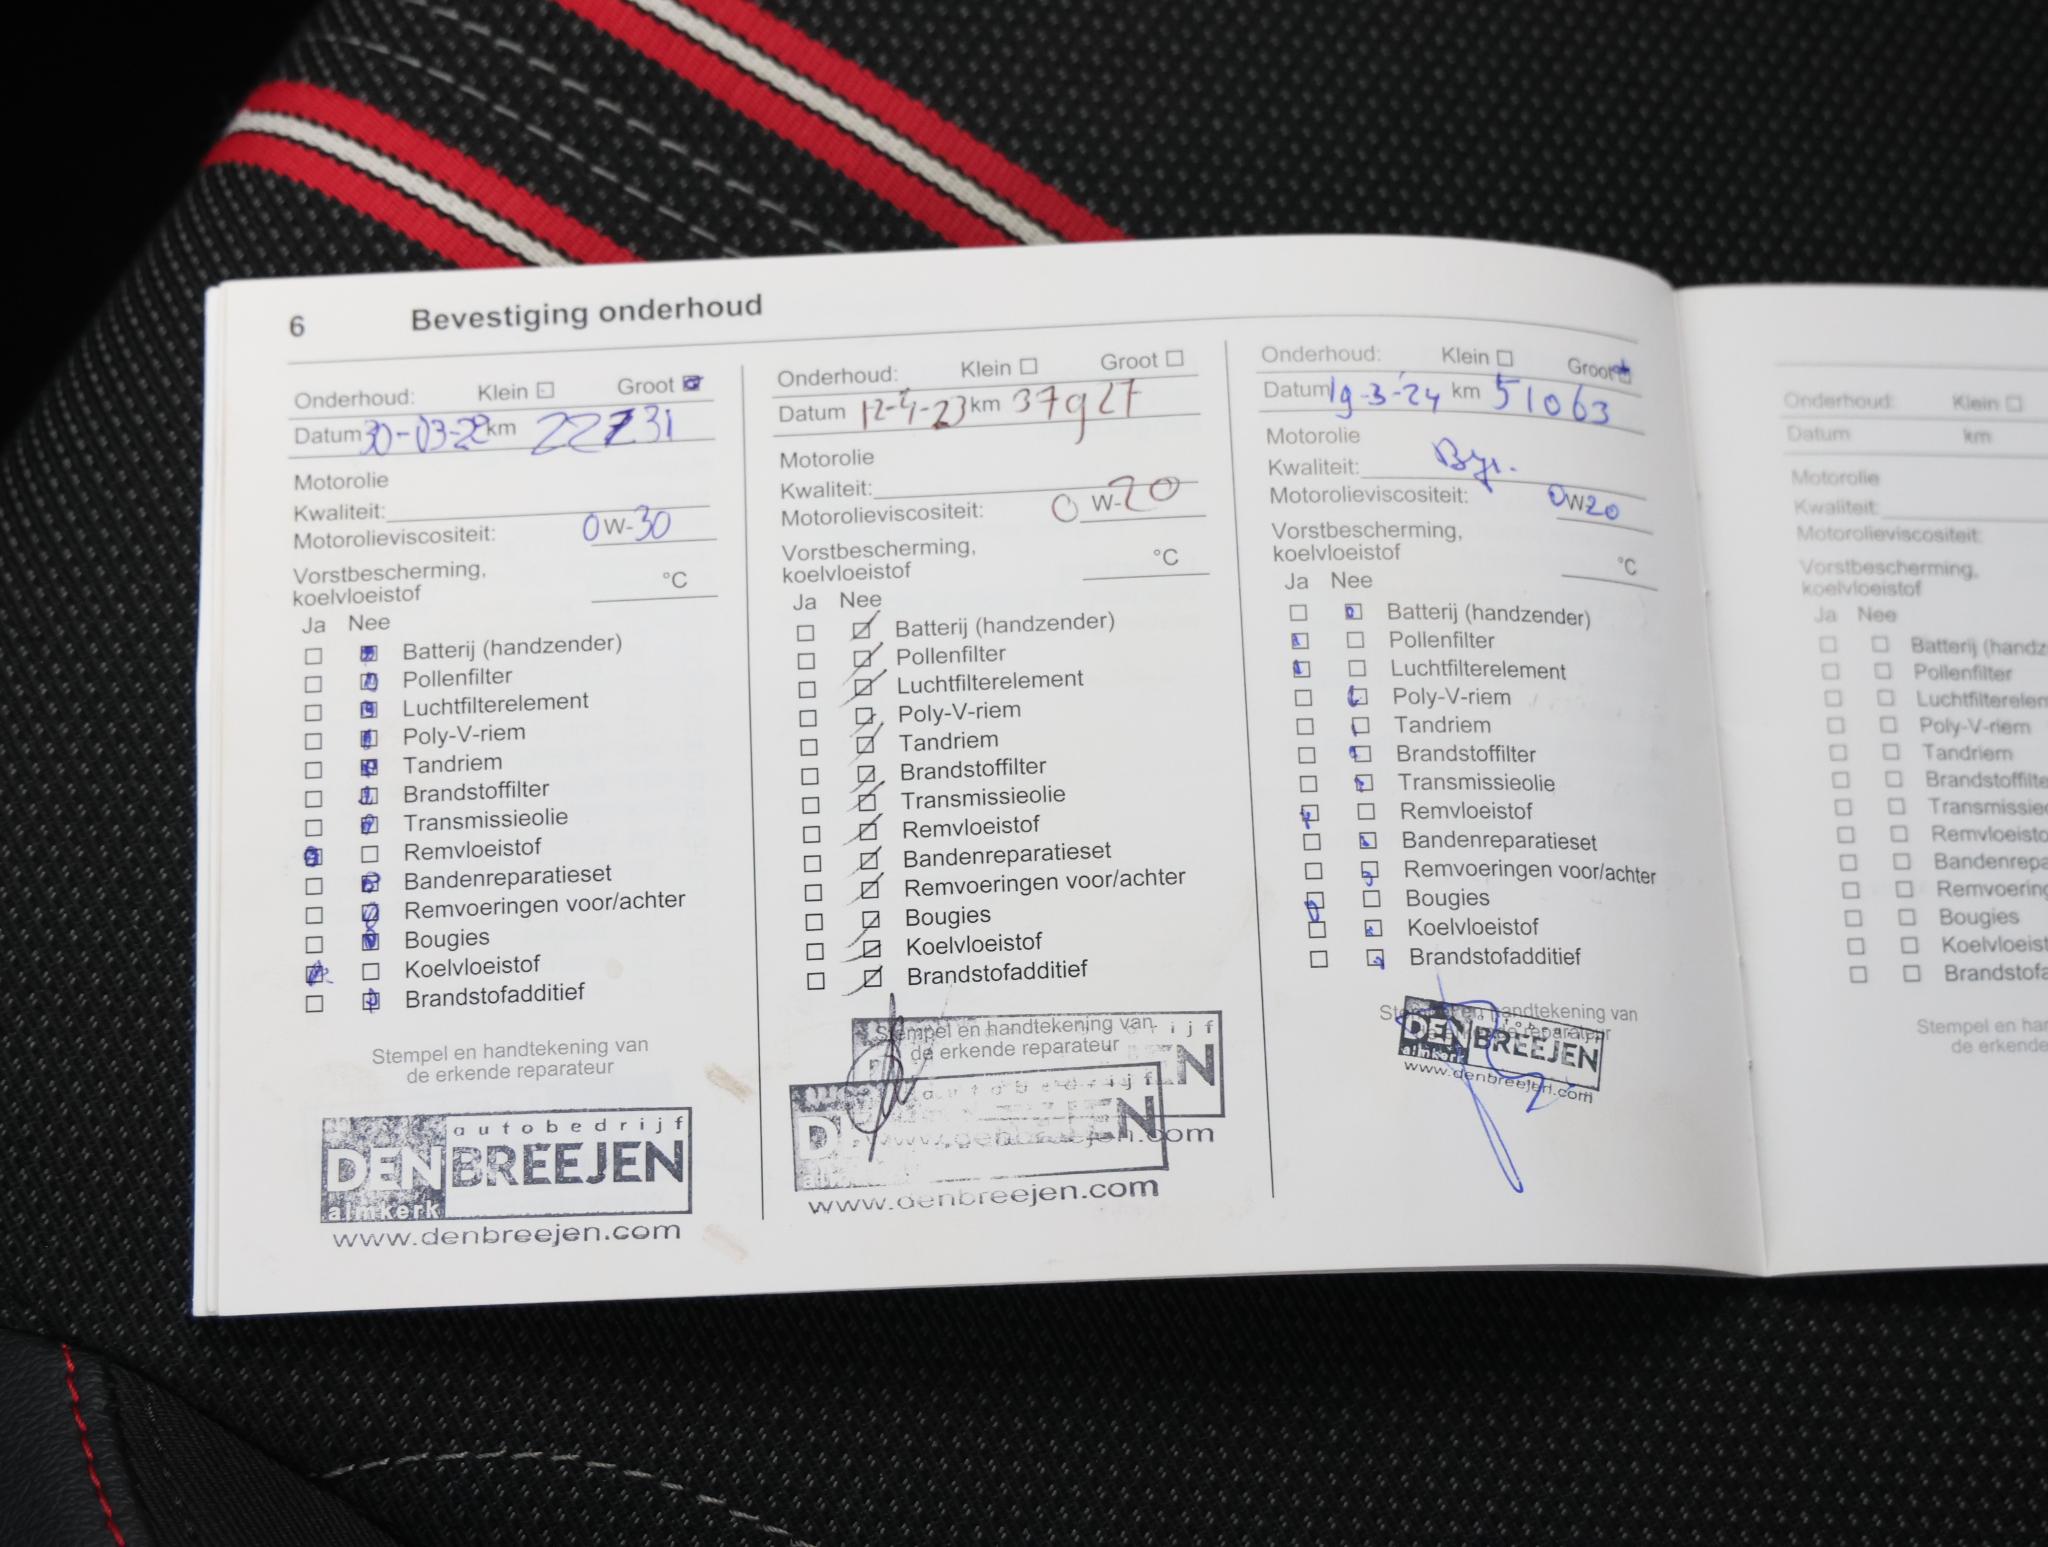 6 Bevestiging onderhoud
Onderhoud: Klein Groot
Datum 30-03-22 km 22731
Motorolie
Kwaliteit:
Motorolieviscositeit: 0 W-30
Vorstbescherming,
koelvloeistof °C
Ja Nee
Batterij (handzender)
Pollenfilter
Luchtfilterelement
Poly-V-riem
Tandriem
Brandstoffilter
Transmissieolie
Remvloeistof
Bandenreparatieset
Remvoeringen voor/achter
Bougies
Koelvloeistof
Brandstofadditief
Stempel en handtekening van
de erkende reparateur
autobedrijf
DEN BREEJEN
almkerk
www.denbreejen.com
Onderhoud: Klein Groot
Datum 12-4-23 km 37927
Motorolie
Kwaliteit:
Motorolieviscositeit: 0 W-20
Vorstbescherming,
koelvloeistof °C
Ja Nee
Batterij (handzender)
Pollenfilter
Luchtfilterelement
Poly-V-riem
Tandriem
Brandstoffilter
Transmissieolie
Remvloeistof
Bandenreparatieset
Remvoeringen voor/achter
Bougies
Koelvloeistof
Brandstofadditief
Stempel en handtekening van
de erkende reparateur
autobedrijf
www.denbreejen.com
www.denbreejen.com
Onderhoud: Klein Groot
Datum 19-3-'24 km 51063
Motorolie
Kwaliteit:
Motorolieviscositeit: 0W20
Vorstbescherming,
koelvloeistof °C
Ja Nee
Batterij (handzender)
Pollenfilter
Luchtfilterelement
Poly-V-riem
Tandriem
Brandstoffilter
Transmissieolie
Remvloeistof
Bandenreparatieset
Remvoeringen voor/achter
Bougies
Koelvloeistof
Brandstofadditief
Stempel en handtekening van
de erkende reparateur
DEN BREEJEN
almkerk
www.denbreejen.com
Onderhoud: Klein
Datum km
Motorolie
Kwaliteit:
Motorolieviscositeit:
Vorstbescherming,
koelvloeistof
Ja Nee
Batterij (handz
Pollenfilter
Luchtfilterelem
Poly-V-riem
Tandriem
Brandstoffilte
Transmissieo
Remvloeisto
Bandenrepa
Remvoering
Bougies
Koelvloeist
Brandstofa
Stempel en han
de erkende